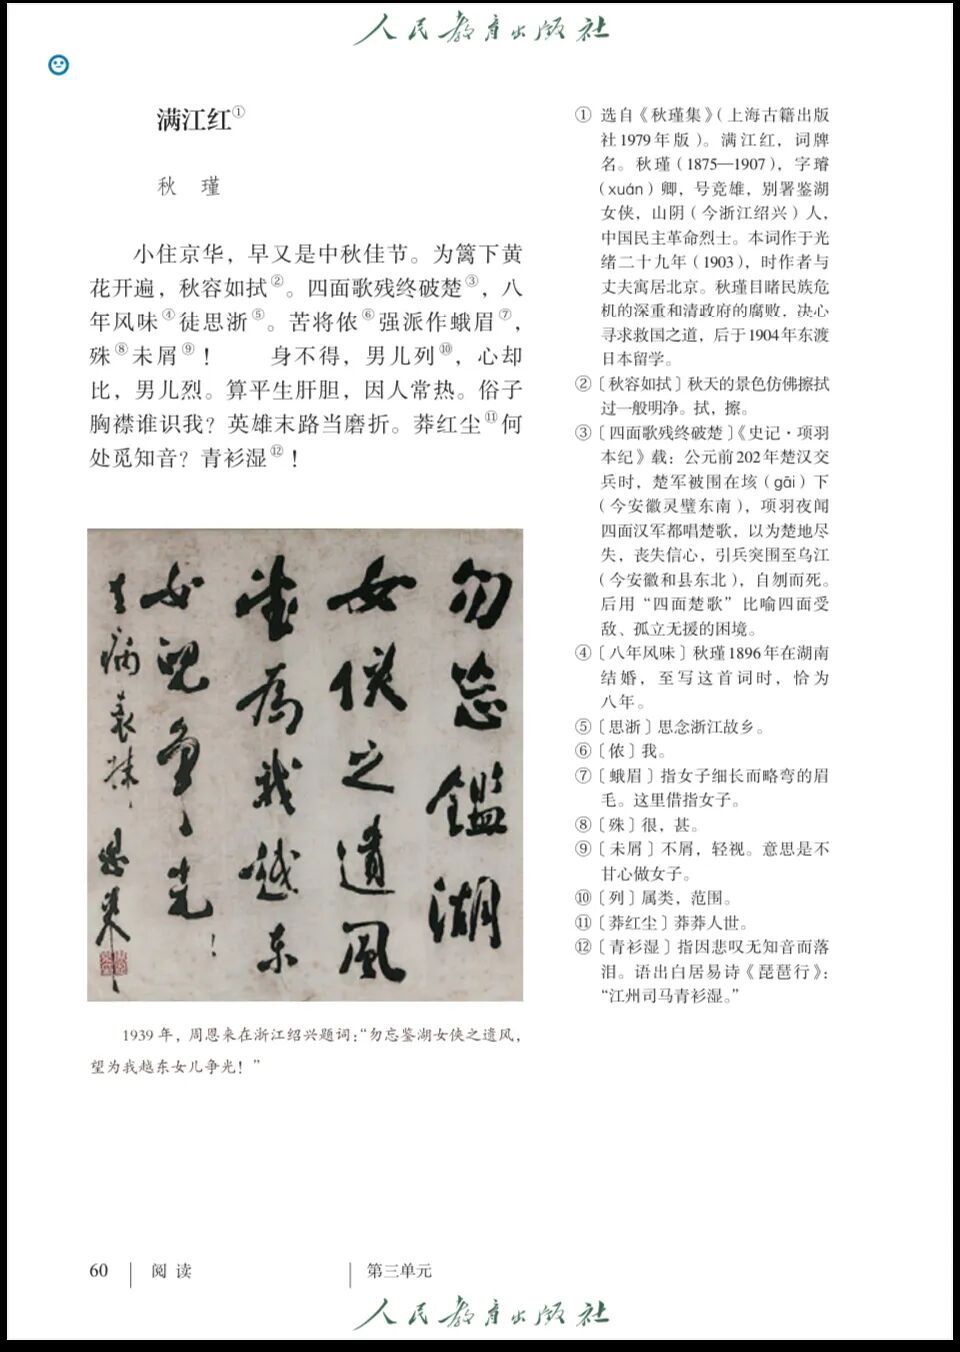 人民教育出版社
满江红①
秋 瑾
小住京华，早又是中秋佳节。为篱下黄
花开遍，秋容如拭②。四面歌残终破楚③，八
年风味④徒思浙⑤。苦将侬⑥强派作蛾眉⑦，
殊⑧未屑⑨！　　身不得，男儿列⑩，心却
比，男儿烈。算平生肝胆，因人常热。俗子
胸襟谁识我？英雄末路当磨折。莽红尘⑪何
处觅知音？青衫湿⑫！
勿忘鑑湖
女侠之遺風
望爲我越东
女兒争光！
恩来
1939年，周恩来在浙江绍兴题词：“勿忘鉴湖女侠之遗风，
望为我越东女儿争光！”
① 选自《秋瑾集》（上海古籍出版
社1979年版）。满江红，词牌
名。秋瑾（1875—1907），字璿
（xuán）卿，号竞雄，别署鉴湖
女侠，山阴（今浙江绍兴）人，
中国民主革命烈士。本词作于光
绪二十九年（1903），时作者与
丈夫寓居北京。秋瑾目睹民族危
机的深重和清政府的腐败，决心
寻求救国之道，后于1904年东渡
日本留学。
②〔秋容如拭〕秋天的景色仿佛擦拭
过一般明净。拭，擦。
③〔四面歌残终破楚〕《史记·项羽
本纪》载：公元前202年楚汉交
兵时，楚军被围在垓（gāi）下
（今安徽灵璧东南），项羽夜闻
四面汉军都唱楚歌，以为楚地尽
失，丧失信心，引兵突围至乌江
（今安徽和县东北），自刎而死。
后用“四面楚歌”比喻四面受
敌、孤立无援的困境。
④〔八年风味〕秋瑾1896年在湖南
结婚，至写这首词时，恰为
八年。
⑤〔思浙〕思念浙江故乡。
⑥〔侬〕我。
⑦〔蛾眉〕指女子细长而略弯的眉
毛。这里借指女子。
⑧〔殊〕很，甚。
⑨〔未屑〕不屑，轻视。意思是不
甘心做女子。
⑩〔列〕属类，范围。
⑪〔莽红尘〕莽莽人世。
⑫〔青衫湿〕指因悲叹无知音而落
泪。语出白居易诗《琵琶行》：
“江州司马青衫湿。”
60 阅读 第三单元
人民教育出版社